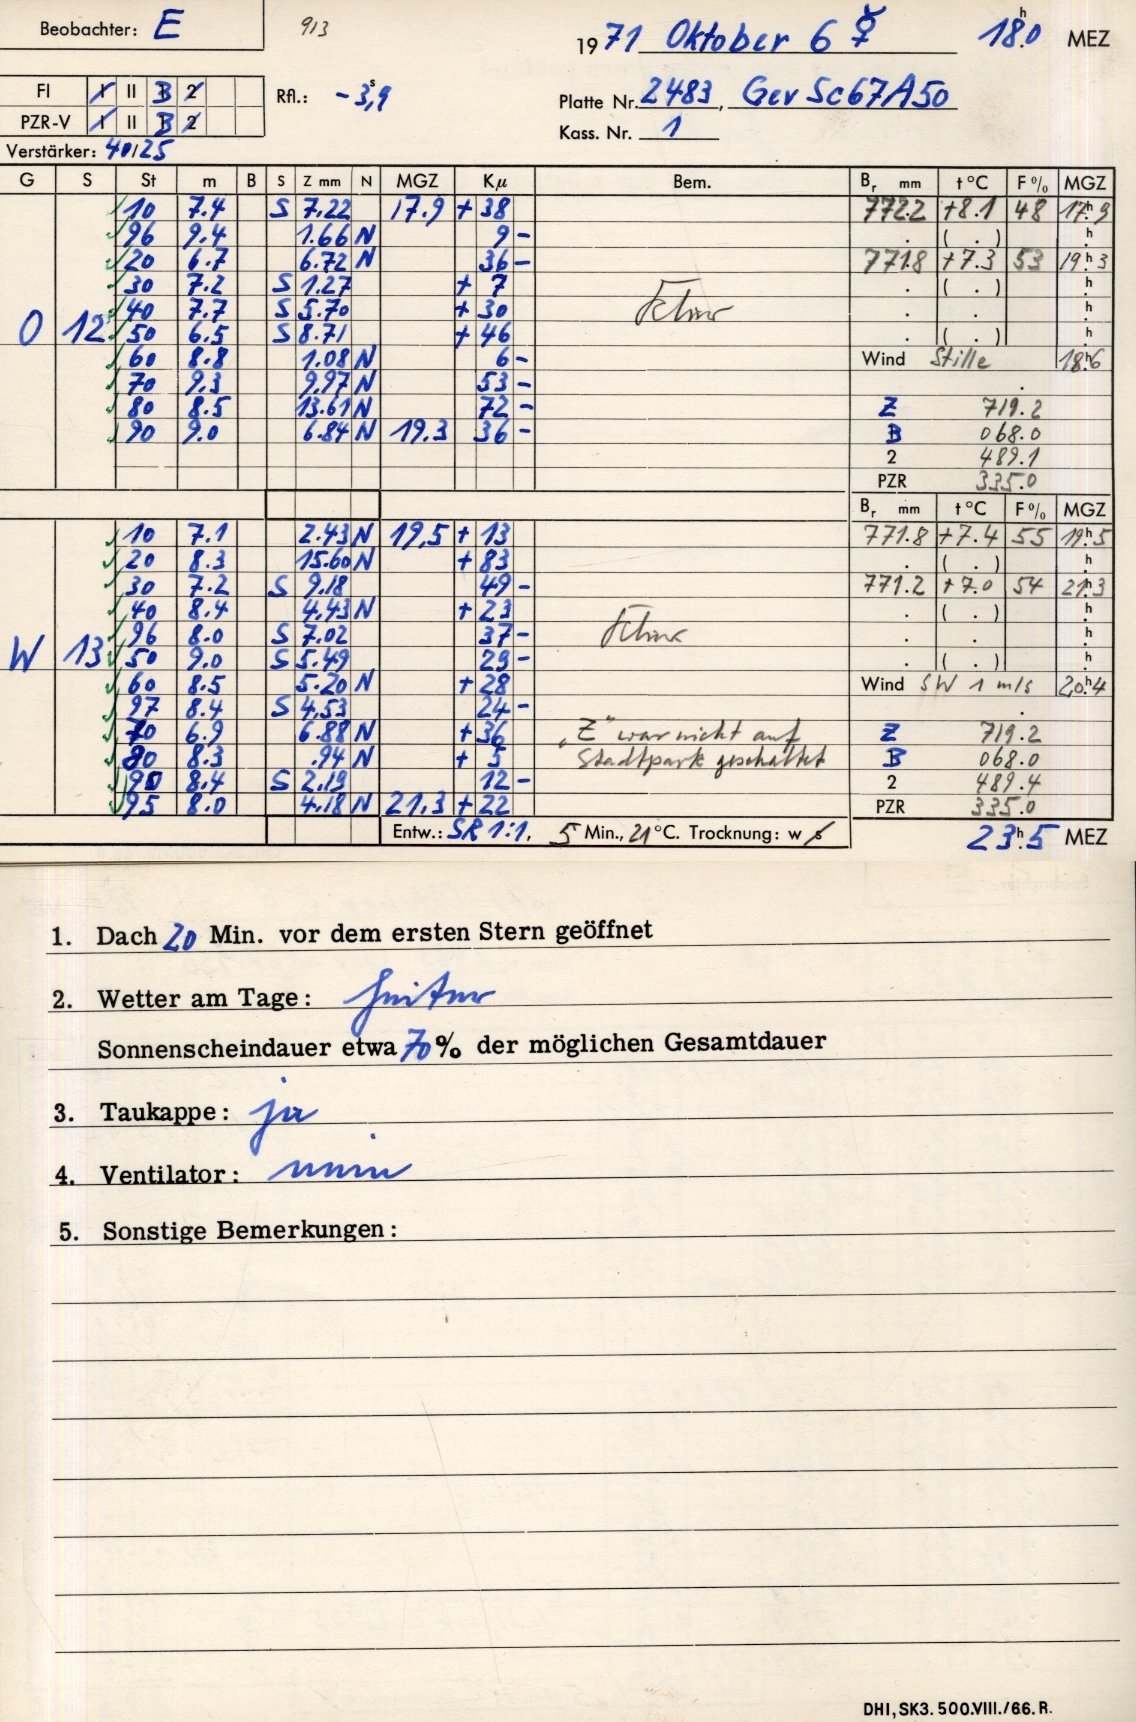 Beobachter: E 913 1971 Oktober 6 ☿ 18.h0 MEZ
FI I II B 2 Rfl.: -3,s9 Platte Nr. 2483, Gev Sc67A50
PZR-V I II B 2 Kass. Nr. 1
Verstärker: 40/25
G S St m B S Z mm N MGZ Kμ Bem. Br mm t°C F% MGZ
10 7.4 S 7.22 17.9 + 38 772.2 +8.1 48 17.h9
96 9.4 1.66 N 9 - . ( . ) h
20 6.7 6.72 N 36 - 771.8 +7.3 53 19.h3
30 7.2 S 1.27 + 7 . ( . ) h
40 7.7 S 5.70 + 30 . . h
O 12 50 6.5 S 8.71 + 46 . ( . ) h
60 8.8 1.08 N 6 - Wind Stille 18.h6
70 9.3 9.97 N 53 - .
80 8.5 13.61 N 72 - Z 719.2
90 9.0 6.84 N 19.3 36 - B 068.0
2 489.1
PZR 335.0
Br mm t°C F% MGZ
10 7.1 2.43 N 19,5 + 13 771.8 +7.4 55 19.h5
20 8.3 15.60 N + 83 . ( . ) h
30 7.2 S 9.18 49 - 771.2 +7.0 54 21.h3
40 8.4 4.43 N + 23 . ( . ) h
96 8.0 S 7.02 37 - . . h
W 13 50 9.0 S 5.49 29 - . ( . ) h
60 8.5 5.20 N + 28 Wind SW 1 m/s 20.h4
97 8.4 S 4.53 24 - .
70 6.9 6.88 N + 36 „Z" war nicht auf Z 719.2
80 8.3 .94 N + 5 Stadtpark geschaltet B 068.0
90 8.4 S 2.19 12 - 2 489.4
95 8.0 4.18 N 21.3 + 22 PZR 335.0
Entw.: SR 1:1, 5 Min., 21°C. Trocknung: w s 23.h5 MEZ
1. Dach 20 Min. vor dem ersten Stern geöffnet
2. Wetter am Tage: heiter
Sonnenscheindauer etwa 70% der möglichen Gesamtdauer
3. Taukappe: ja
4. Ventilator: nein
5. Sonstige Bemerkungen:
DHI, SK3. 500.VIII./66. R.